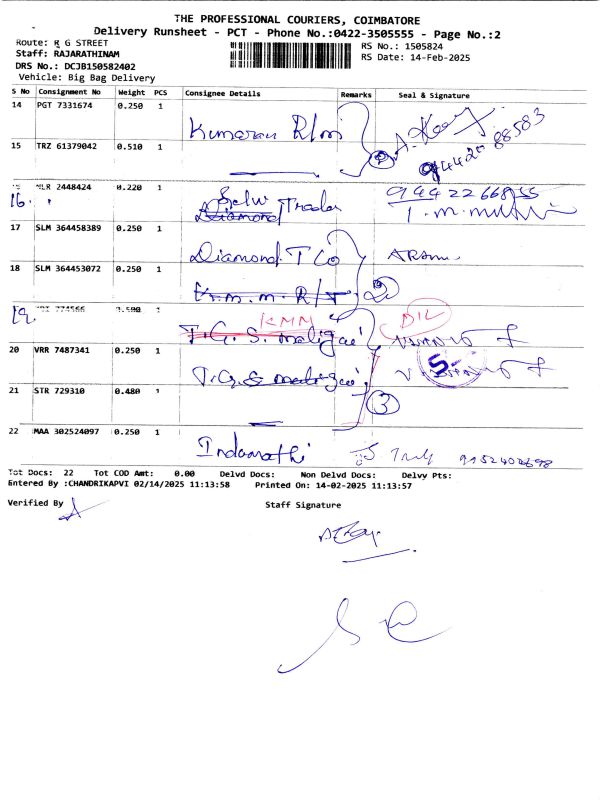 THE PROFESSIONAL COURIERS, COIMBATORE
Delivery Runsheet - PCT - Phone No.:0422-3505555 - Page No.:2
Route: R G STREET
Staff: RAJARATHINAM
DRS No.: DCJB150582402
Vehicle: Big Bag Delivery
RS No.: 1505824
RS Date: 14-Feb-2025
S No Consignment No Weight PCS Consignee Details Remarks Seal & Signature
14 PGT 7331674 0.250 1 Kumaran
15 TRZ 61379042 0.510 1 2 94420 88583
16. 2448424 0.220 1 Selvi Trader 9442266855
Diamond
17 SLM 364458389 0.250 1 Diamond T Co
18 SLM 364453072 0.250 1 K.m.m. R/T 2
19. 1 T.G. S. maligai KMM DIL
20 VRR 7487341 0.250 1 T.G. S maligai
21 STR 729310 0.480 1 3
22 MAA 302524097 0.250 1 Indumathi
Tot Docs: 22 Tot COD Amt: 0.00 Delvd Docs: Non Delvd Docs: Delvy Pts:
Entered By :CHANDRIKAPVI 02/14/2025 11:13:58 Printed On: 14-02-2025 11:13:57
Verified By Staff Signature